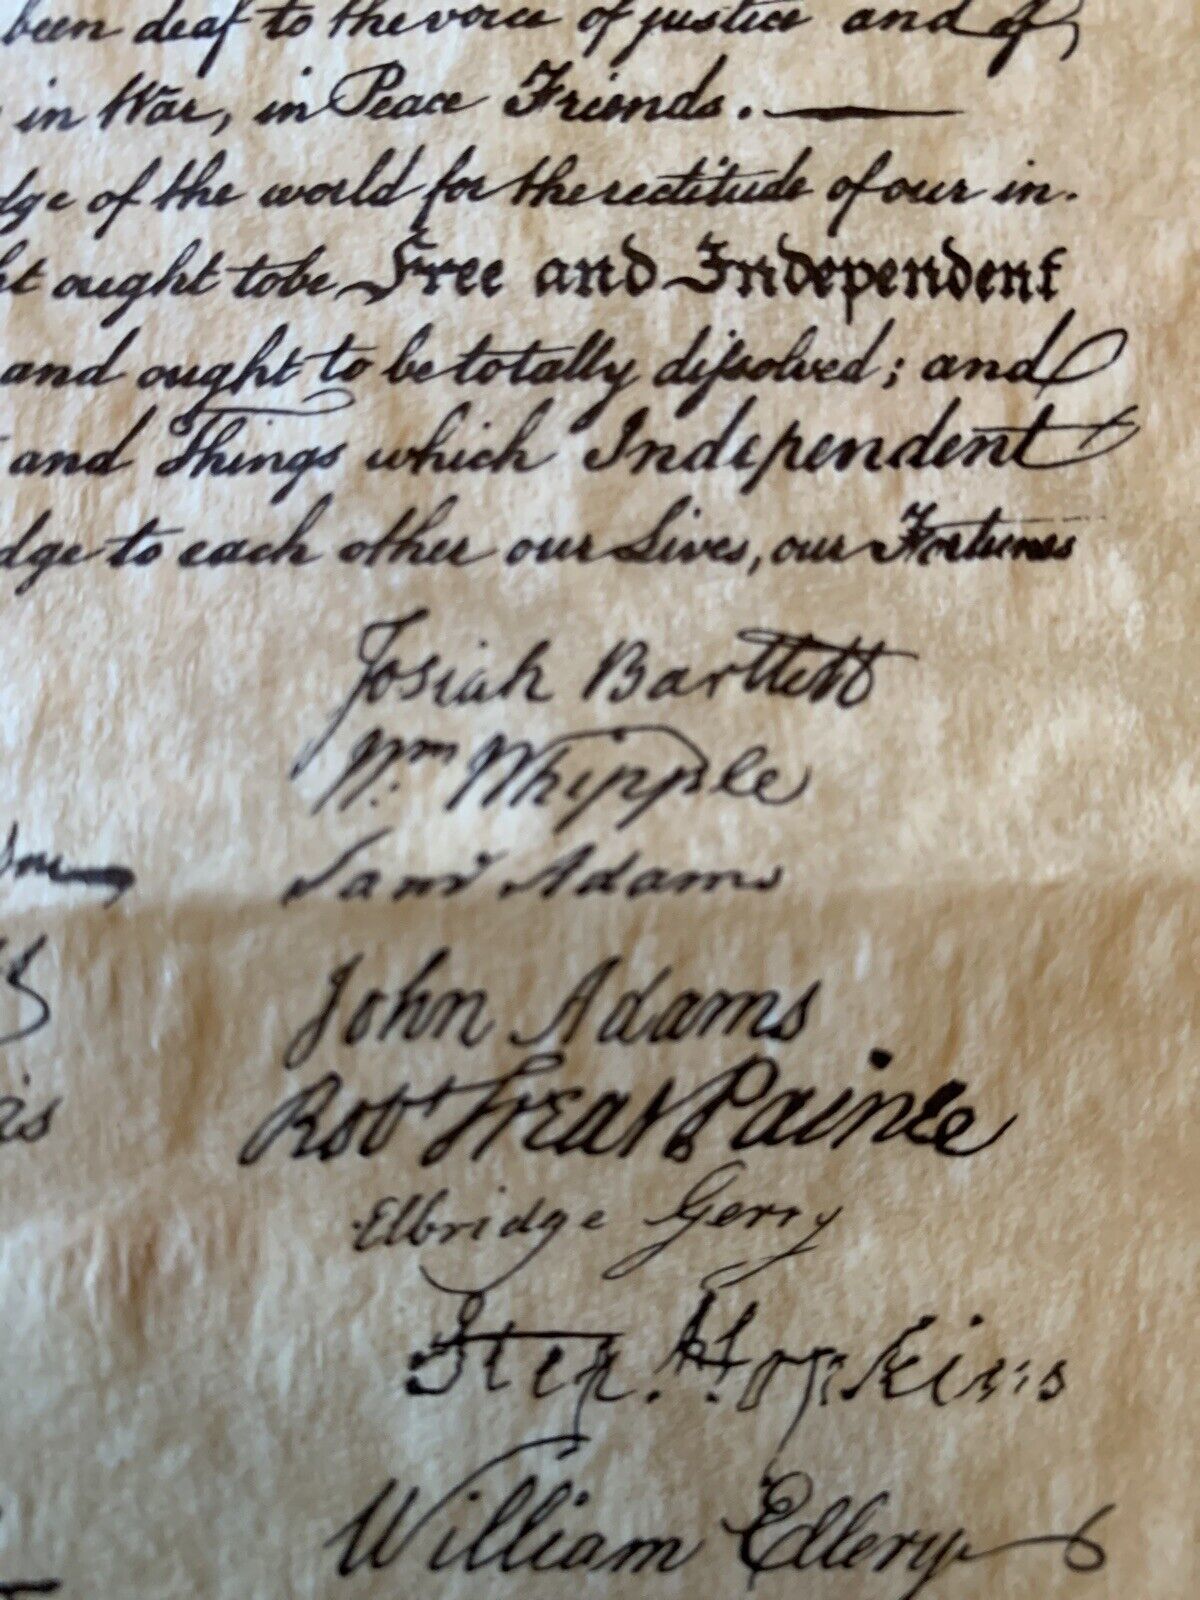 been deaf to the voice of justice and of
in War, in Peace Friends. —
dge of the world for the rectitude of our in-
ht ought to be Free and Independent
and ought to be totally dissolved; and
and Things which Independent
dge to each other our Lives, our Fortunes
Josiah Bartlett
Wm Whipple
Saml Adams
John Adams
Robt Treat Paine
Elbridge Gerry
Step. Hopkins
William Ellery